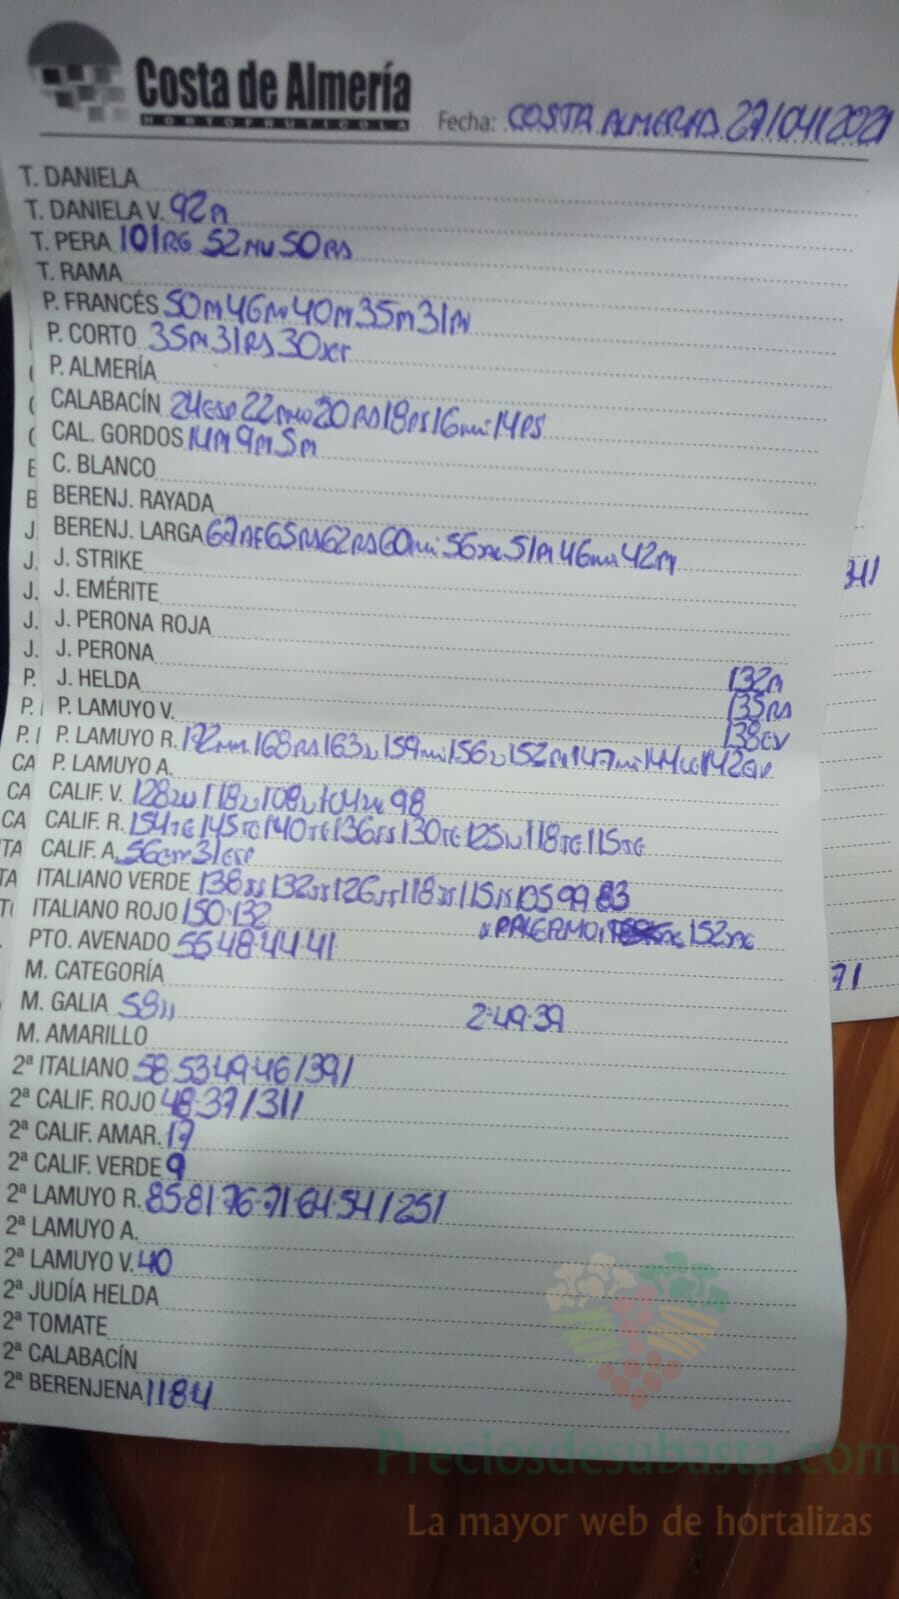 Costa de Almería
HORTOFRUTICOLA
Fecha: COSTA ALMERIA 27/04/2021
T. DANIELA
T. DANIELA V. 92
T. PERA 101RG 52 50RS
T. RAMA
P. FRANCÉS 50m 46 40m 35m 31
P. CORTO 35 31RS 30
P. ALMERÍA
CALABACÍN 24ESP 22 20RS 18RS 16 14RS
CAL. GORDOS 14m 9m 5m
C. BLANCO
BERENJ. RAYADA
BERENJ. LARGA 67 65RS 62RS 60 56 51 46 42
J. STRIKE
J. EMÉRITE
341
J. PERONA ROJA
J. PERONA
J. HELDA 132
P. LAMUYO V. 135RS
138
P. LAMUYO R. 172 168RS 163 159 156 152 147 144 142
P. LAMUYO A.
CALIF. V. 128 118 108 104 98
CALIF. R. 154TG 145TG 140TG 136SS 130TG 125 118TG 115TG
CALIF. A. 56 31ESP
ITALIANO VERDE 138SS 132SS 126SS 118SS 115SS 105 99 83
ITALIANO ROJO 150·132
PALERMO 152
PTO. AVENADO 55·48·44·41
M. CATEGORÍA
71
M. GALIA 58 2·49·39
M. AMARILLO
2ª ITALIANO 58·53·49·46/39/
2ª CALIF. ROJO 48·37/31/
2ª CALIF. AMAR. 17
2ª CALIF. VERDE 9
2ª LAMUYO R. 85·81·76·71·64·54/25/
2ª LAMUYO A.
2ª LAMUYO V. 40
2ª JUDÍA HELDA
2ª TOMATE
2ª CALABACÍN
2ª BERENJENA 11·8·4
Preciosdesubasta.com
La mayor web de hortalizas